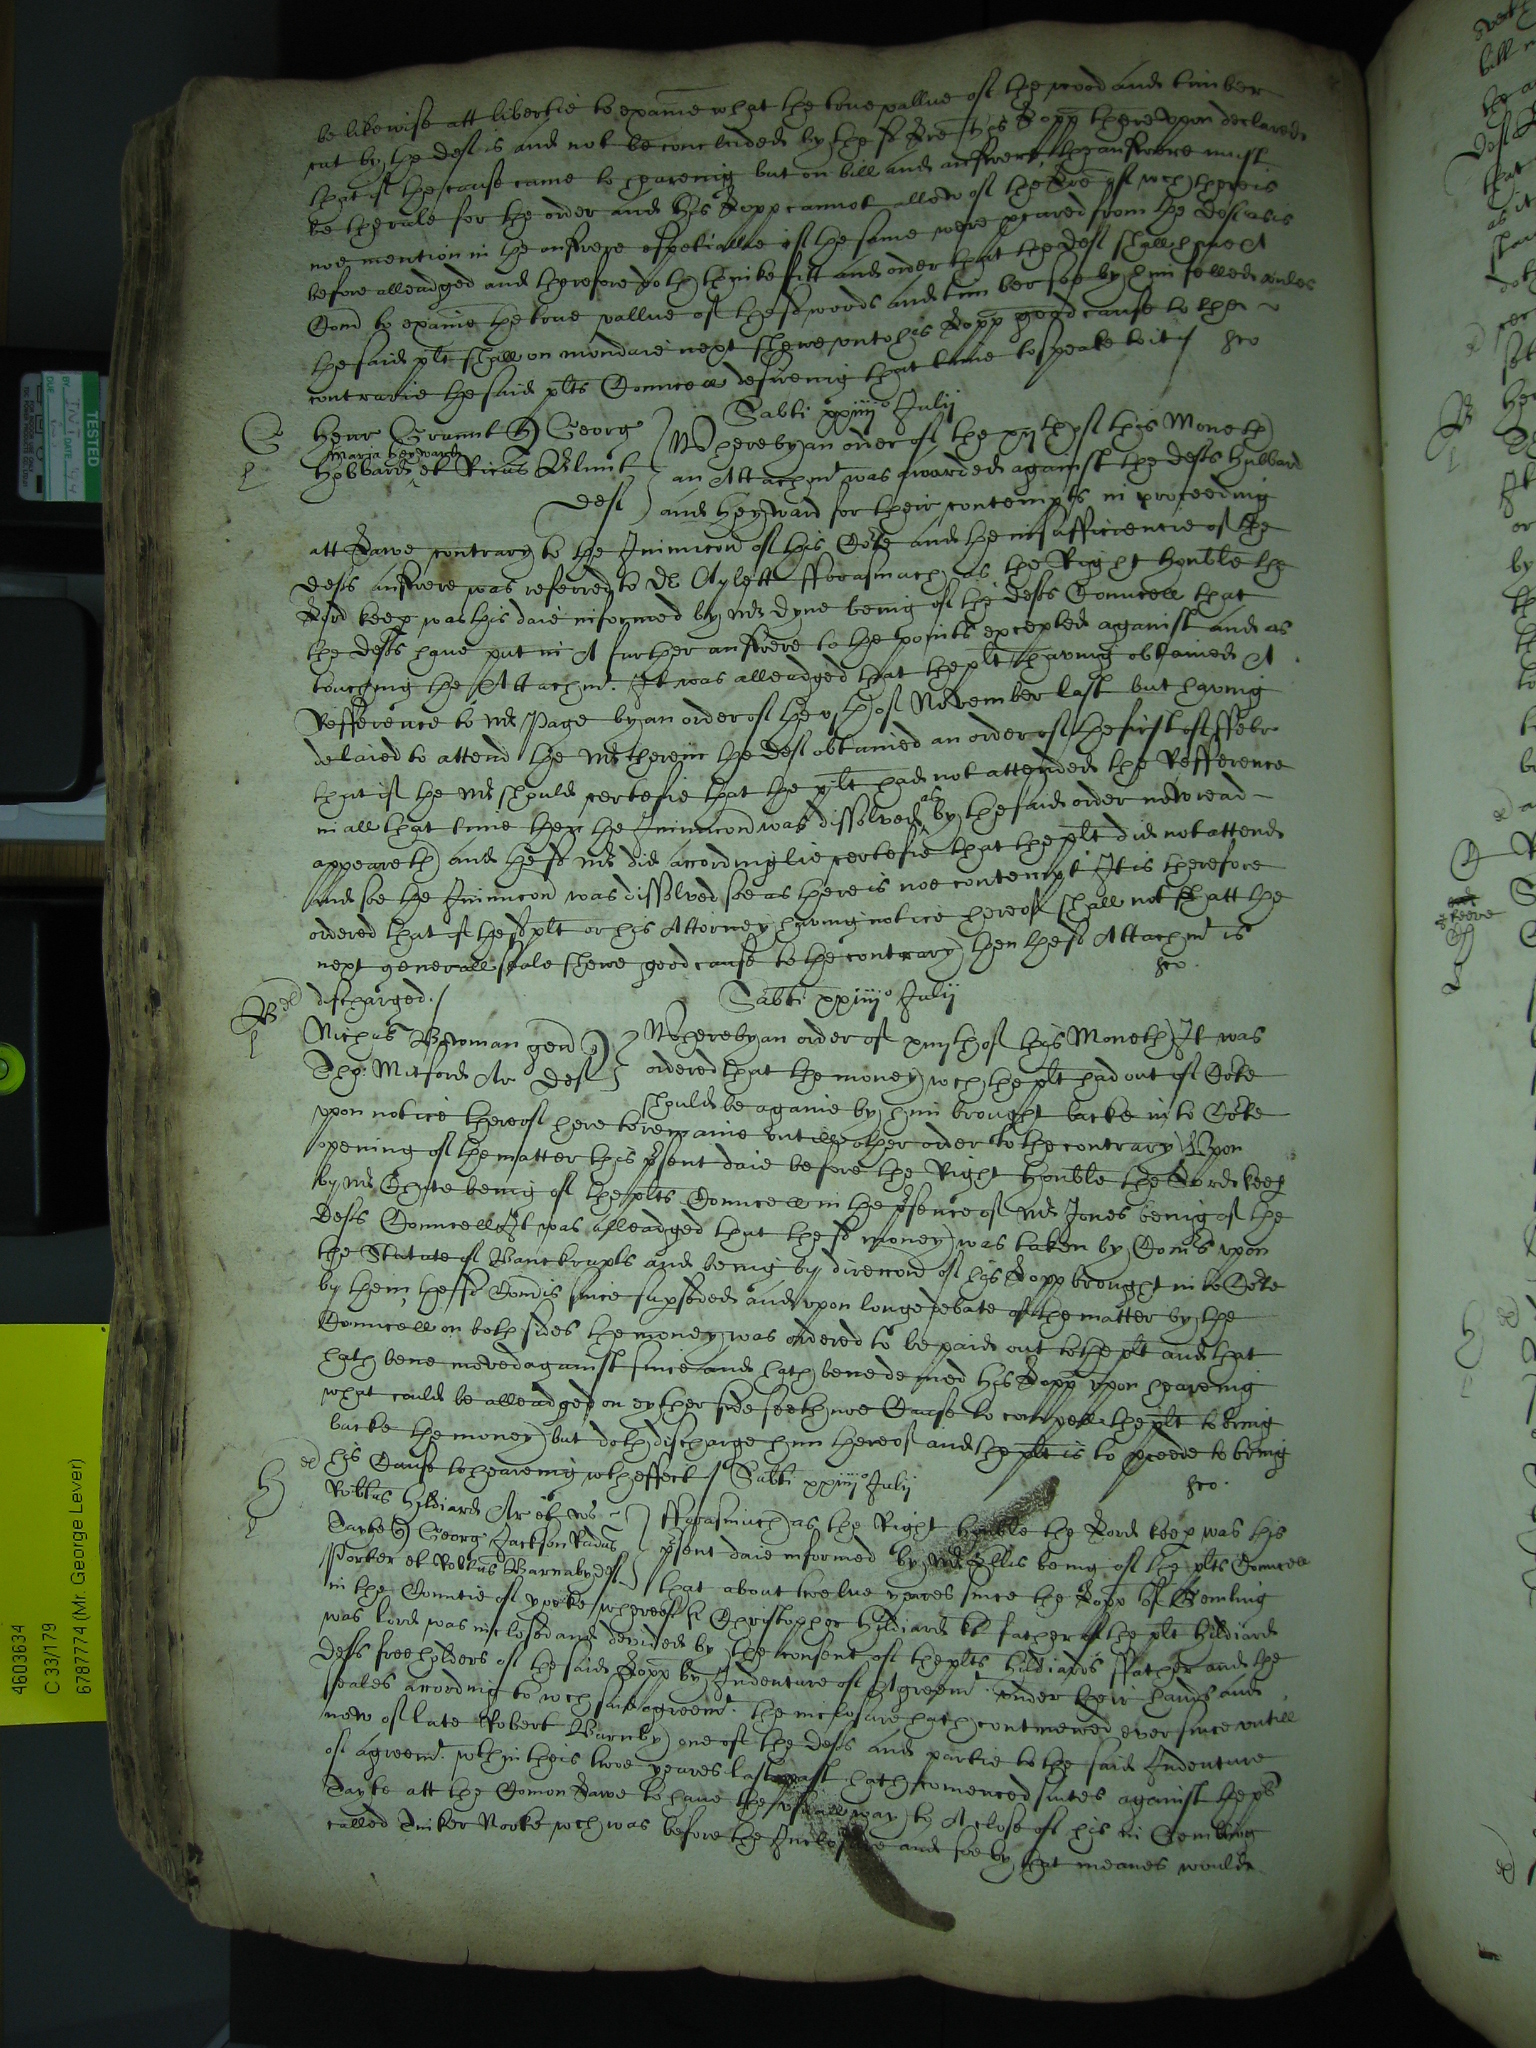 be likewise att libertie to examine what the true vallue of the wood and timber
cut by the deft is and not be concluded by the sd his Lopp thereupon declared
that if the cause came to heareing but on bill and answere the answere must
be the rule for the order and his Lopp cannot allow of the of wch there is
noe mention in the answere espetiallie if the same were from the deft as is
before alleadged and therefore doth thinke fitt and order that the deft shall
Comd to examine the true vallue of the sd woods and timber soe by him felled unles
the said plt shall on mondaie next shewe unto his Lopp good cause to the
contrarie the said plts Councell desireing that time to speake to it
Sabti xxiiiio Julij
Henr Grannt George
Maria Heyward
Hobbard et Ricus Blunt
deft
Whereby an order of the of this Moneth
an Attachmt was awarded against the defts Hubbard
and Heyward for their contempts in proceeding
att Lawe contrary to the Iniuncon of this Cote and the insufficiencie of the
defts answere was referred to Dr Aylett fforasmuch as the Right honble the
Lord keep was this daie informed by Mr dyne being of the defts Councell that
the defts have put in A further answere to the points excepted against and as
touching the Attachmt It was alleadged that the plt having obtained A
Refference to Mr Page by an order of the of November last but having
delaied to attend the Mr therein the deft obtained an order of the first of ffebr
that if the Mr should certefie that the plt had not attended the Refference
in all that time then the Iniuncon was dissolved as by the said order now read
appeareth and the sd Mr did accordinglie certefie that the plt did not attend
and soe the Iniuncon was dissolved soe as there is noe contempt It is therefore
ordered that if the sd plt or his Attorney having notice hereof shall not att the
next generall seale shewe good cause to the contrary then the sd Attachmt is
discharged
Sabti xxiiiio Julij
Nichus Bowman gen
Tho: Mitford Ar deft
Whereby an order of xiiijth of this Moneth It was
ordered that the money wch the plt had out of Cote
should be againe by him brought backe into Cote
upon notice thereof here to remaine untill other order to the contrary Upon
opening of the matter this psent daie before the Right honble the Lord keep
by Mr being of the plts Councell in the psence of Mr Jones being of the
defts Councell It was alleadged that the sd money was taken by Comrs upon
the Statute of Banckrupts and being by direccon of his Lopp brought into Cote
by them the sd Comis since supseded and upon longe debate of the matter by the
Councell on both sides the money was ordered to be paid out to the plt and that
hath bene moved against since and hath bene denied his Lopp upon heareing
what could be alleadged on eyther side seeth noe Cause to compell the plt to bring
backe the money but doth discharge him thereof and the plt is to pceede to bring
his Cause to heareing wth effect
Sabti xxiiiio Julij
Robtus Hildiard Ar et
George Jackson Radus
Porter et Robtus Barnaby deft
fforasmuch as the Right honble the Lord keep was this
psent daie informed by Mr Ellis being of the plts Councell
that about twelve yeares since the Lopp of Gembling
in the Countie of yorke whereof Sr Christopher Hildiard kt father of the plt Hildiard
was lord was inclosed and devided by the consent of the plts Hildiards ffather and the
defts freeholders of the said Lopp by Indenture of Agreemt under their hands and
seales according to wch said agreemt the inclosure hath contynewed ever since untill
now of late Robert Barnby one of the defts and partie to the said Indenture
of agreemt wthin theis two yeares last past hath comenced suites against the plt
att the Comon Lawe to have the usuall way to A close of his in Gembling
called wch was before the Inclosure and soe by that meanes would
TESTED
4603634
C 33/179
6787774 (Mr. George Lever)